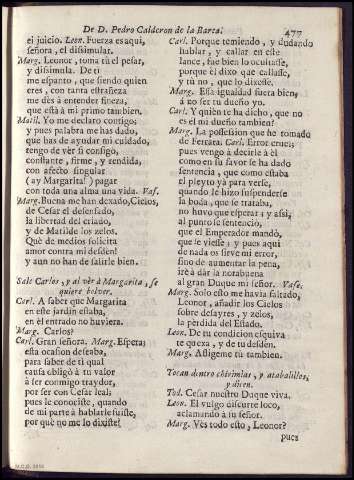 De D. Pedro Calderon de la Barca.
477
el juicio. Leon. Fuerza es aqui,
señora, el disimular.
Marg. Leonor, toma tù el pesar,
y disimula. De ti
me espanto, que siendo quien
eres, con tanta estrañeza
me dès à entender fineza,
que està à mi primo tambien.
Matil. Yo me declaro contigo;
y pues palabra me has dado,
que has de ayudar mi cuidado,
tengo de vèr si consigo,
constante, firme, y rendida,
con afecto singular
(ay Margarita!) pagar
con toda el alma una vida. Vas.
Marg. Buena me han dexado, Cielos,
de Cesar el desenfado,
la libertad del criado,
y de Matilde los zelos.
Què de medios solicita
amor contra mi desdèn!
y aun no han de salirle bien.
Sale Carlos, y al vèr à Margarita, se
quiere bolver.
Carl. A saber que Margarita
en este jardin estaba,
en èl entrado no huviera.
Marg. Carlos?
Carl. Gran señora. Marg. Espera;
esta ocasion deseaba,
para saber de tì qual
causa obligò à tu valor
à ser conmigo traydor,
por ser con Cesar leal;
pues le conociste, quando
de mi parte à hablarle fuiste,
por què no me lo dixiste?
Carl. Porque temiendo, y dudando
hablar, y callar en este
lance, fue bien lo ocultasse,
porque èl dixo que callasse,
y tù no, que lo dixesse.
Marg. Essa igualdad fuera bien,
à no ser tu dueño yo.
Carl. Y quièn te ha dicho, que no
es èl mi dueño tambien?
Marg. La possession que he tomado
de Ferrara. Carl. Error cruel;
pues vengo à decirle à èl
como en su favor se ha dado
sentencia, que como estaba
el pleyto yà para verse,
quando le hizo suspenderse
la boda, que se trataba,
no huvo que esperar; y assi,
al punto se sentenciò,
que el Emperador mandò,
que se viesse; y pues aqui
de nada os sirve mi error,
sino de aumentar la pena,
irè à dàr la norabuena
al gran Duque mi señor. Vase.
Marg. Solo esto me havia faltado,
Leonor, añadir los Cielos
sobre desayres, y zelos,
la perdida del Estado.
Leon. De tu condicion esquiva
te quexa, y de tu desdèn.
Marg. Asligeme tù tambien.
Tocan dentro chirimias, y atabalillos,
y dicen.
Tod. Cesar nuestro Duque viva.
Leon. El vulgo discurre loco,
aclamando à su señor.
Marg. Vès todo esto, Leonor?
pues